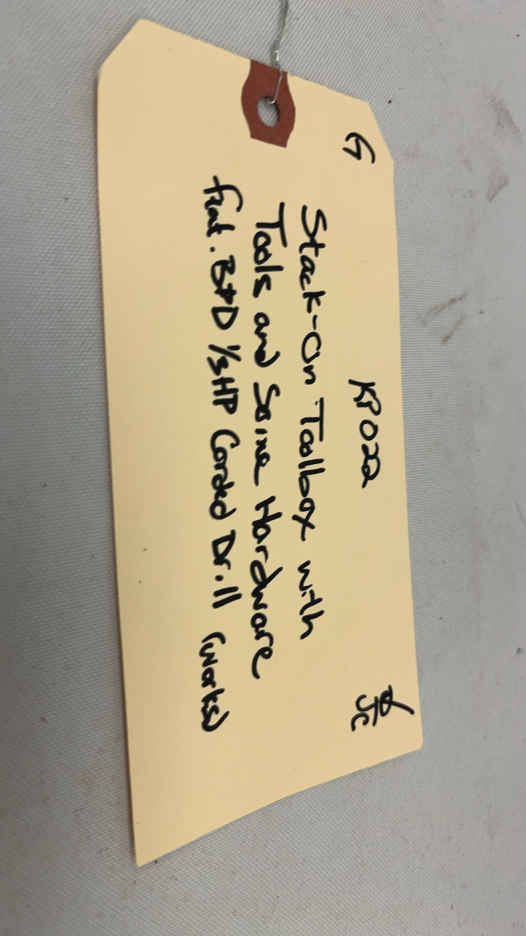 G KP022 JC
Stack-On Toolbox with
Tools and Some Hardware
feat. B+D 1/3 HP Corded Drill (works)